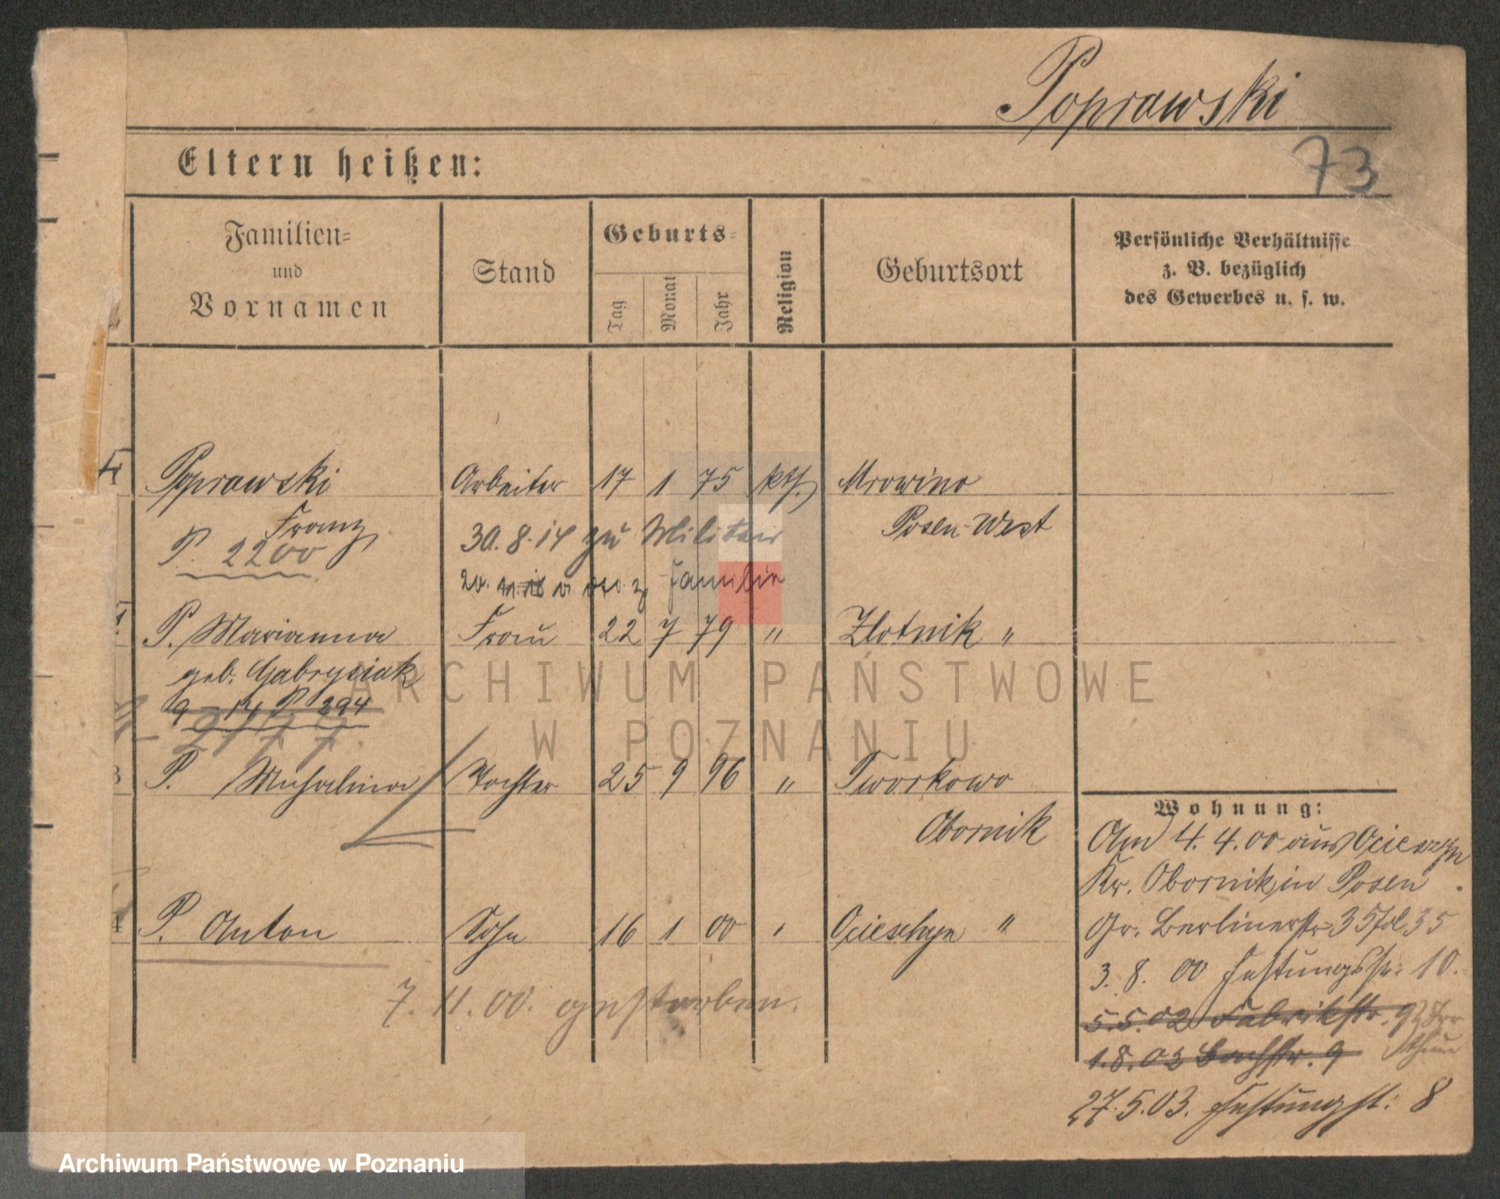 Poprawski
73
Eltern heißen:
Familien-
und
Vornamen
Stand
Geburts-
Tag
Monat
Jahr
Religion
Geburtsort
Persönliche Verhältnisse
z. B. bezüglich
des Gewerbes u. s. w.
Poprawski Arbeiter 17 1 75 kth. Mrowino
Franz
Posen-West
P. 2200
30. 8. 14 zu Militär
20. z. Familie
P. Marianna Frau 22 7 79 " Zlotnik "
geb. Gabrysiak
9 - 14 P 294
3 P. Michalina Tochter 25 9 96 " Tworkowo
Obornik
4 P. Anton Sohn 16 1 00 " Ocieschyn "
7. 11. 00. gestorben.
Wohnung:
Am 4. 4. 00 aus Ocieszyn
Kr. Obornik, in Posen
Gr. Berlinerstr. 35
3. 8. 00 Festungsstr. 10.
5.5.02 Fabrikstr. 9
1.8.02 Bachstr. 9
27.5.03. Festungsst: 8
ARCHIWUM PAŃSTWOWE
W POZNANIU
Archiwum Państwowe w Poznaniu